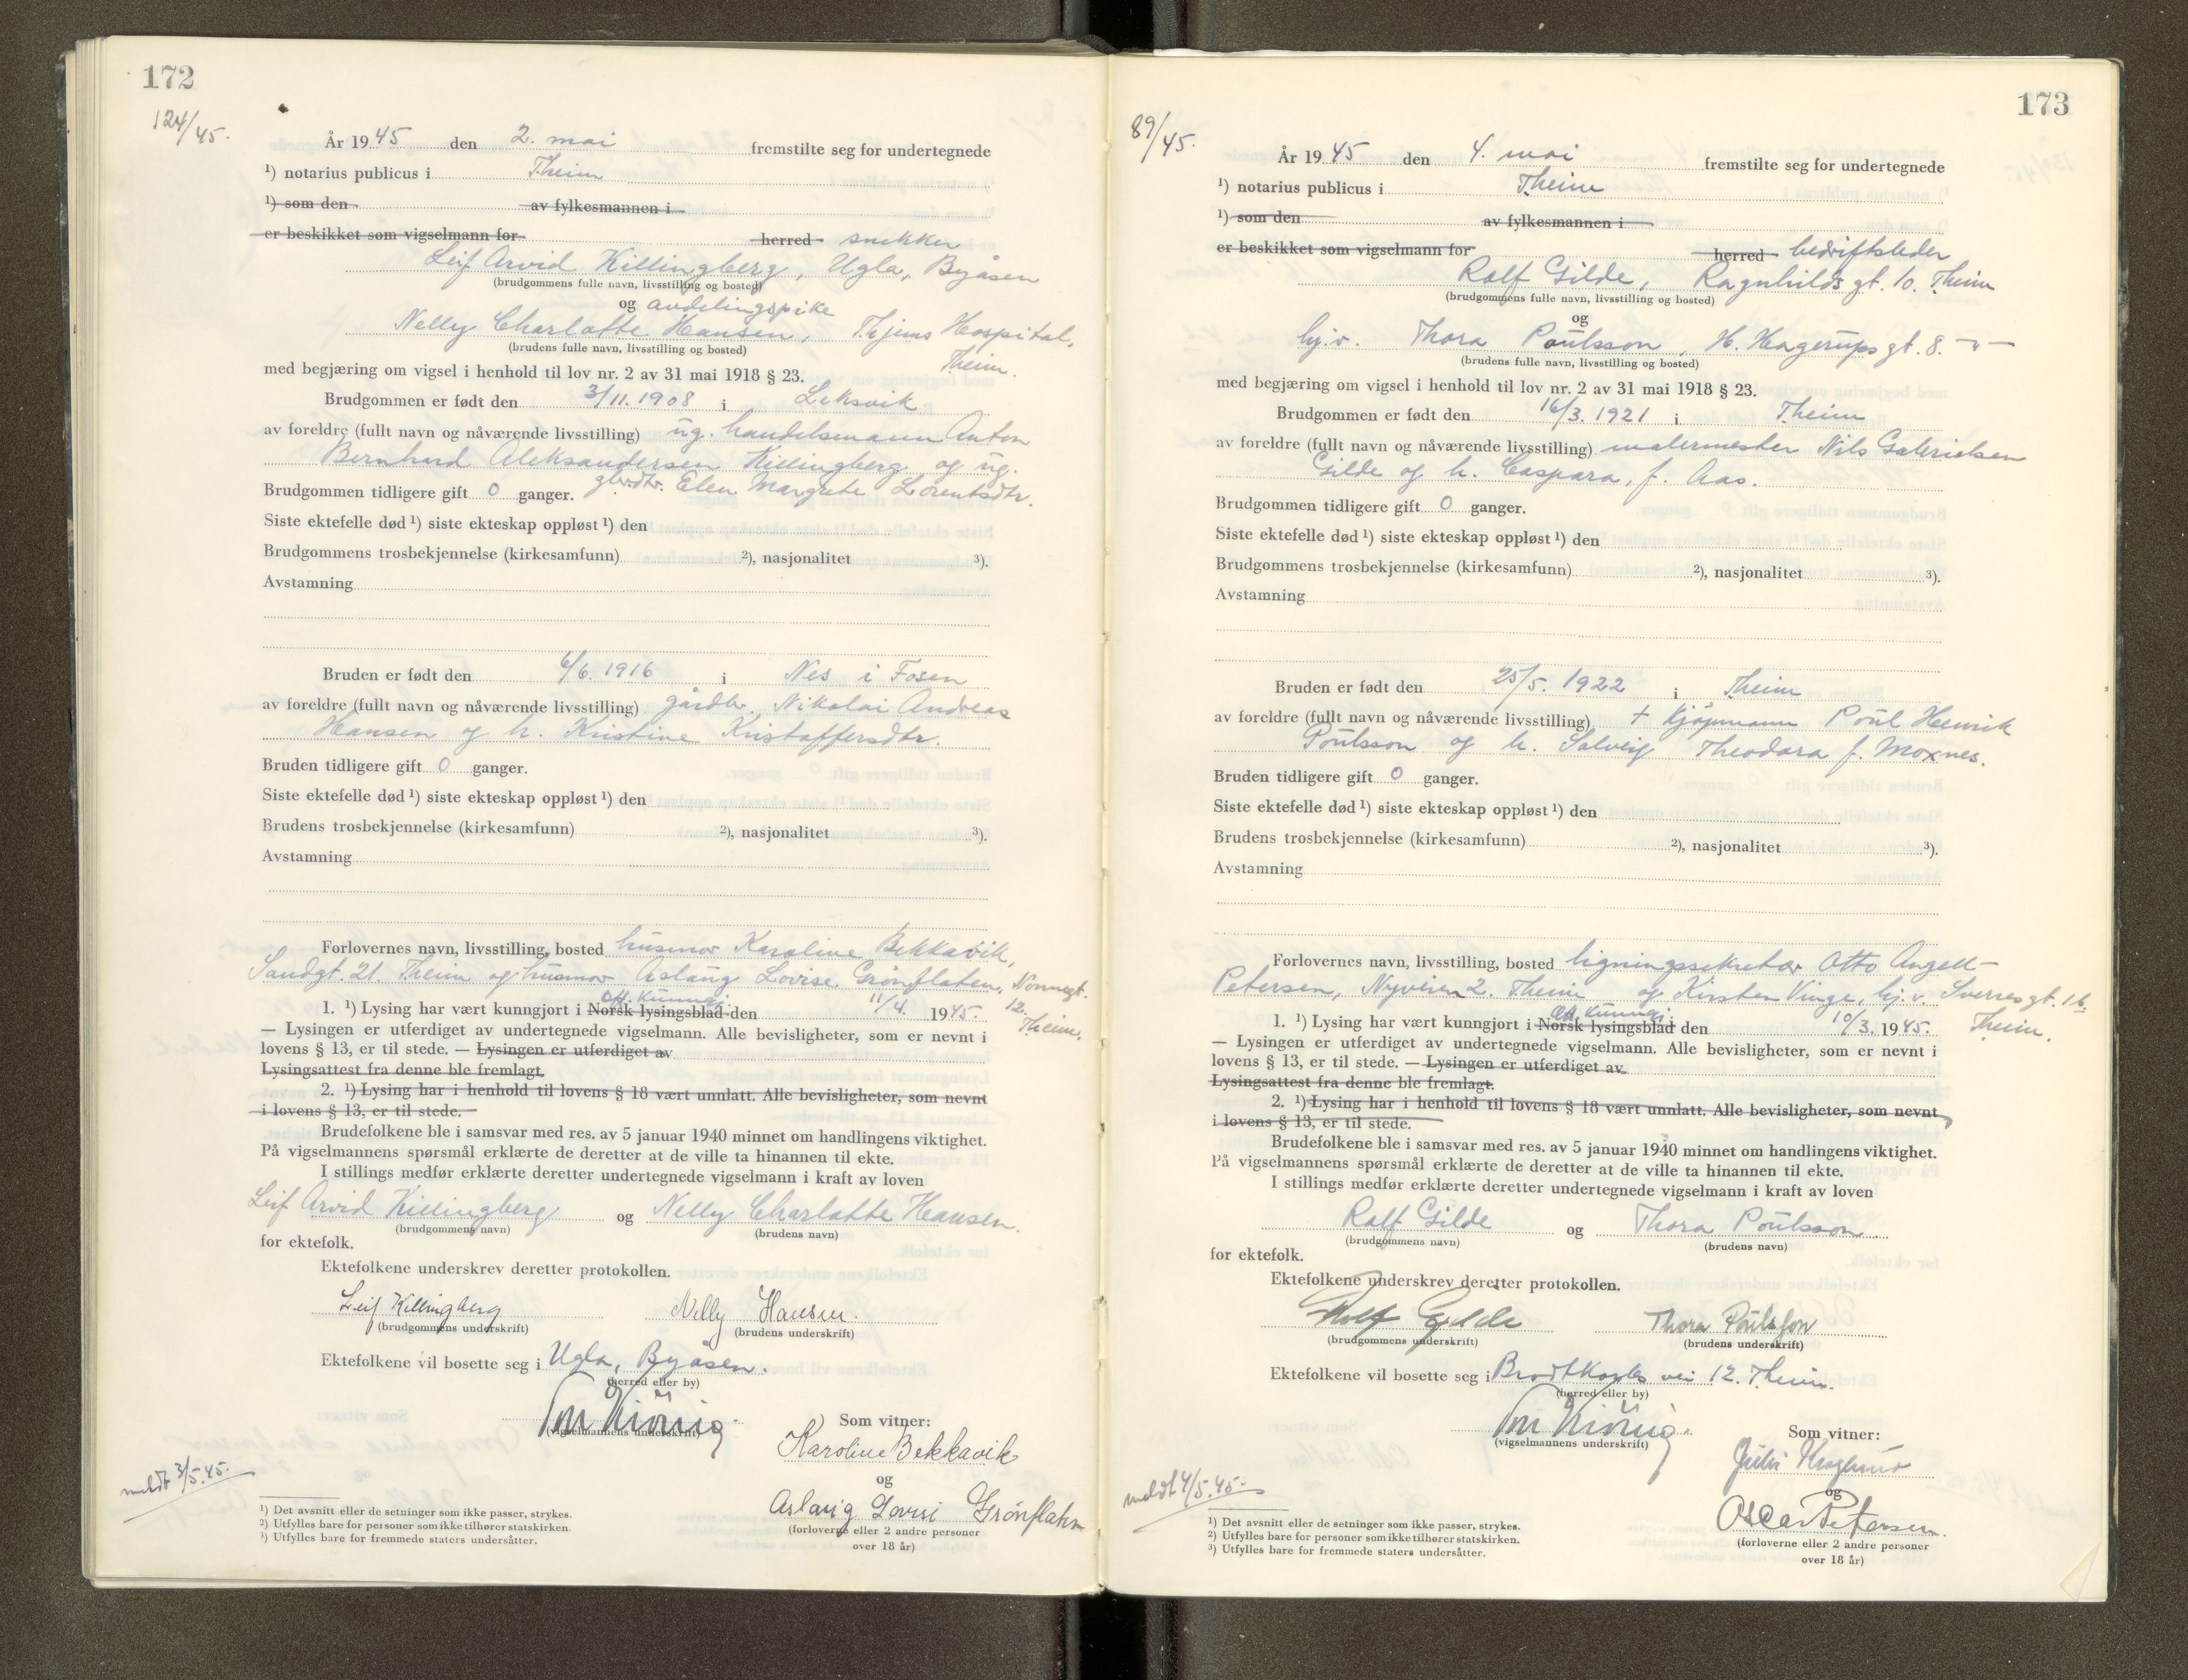 172
124/45.
År 1945 den 2. mai fremstilte seg for undertegnede
1) notarius publicus i Theim
1) som den av fylkesmannen i
er beskikket som vigselmann for herred snekker
Leif Arvid Killingberg, Ugla, Byåsen
(brudgommens fulle navn, livsstilling og bosted)
og avdelingspike
Nelly Charlotte Hansen, Thjems Hospital,
(brudens fulle navn, livsstilling og bosted)
Theim.
med begjæring om vigsel i henhold til lov nr. 2 av 31 mai 1918 § 23.
Brudgommen er født den 3/11. 1908 i Leksvik
av foreldre (fullt navn og nåværende livsstilling) ug. handelsmann Anton
Bernhard Aleksandersen Killingberg og ug.
Brudgommen tidligere gift 0 ganger. gbr.dtr. Elen Margrete Lorentsdtr.
Siste ektefelle død 1) siste ekteskap oppløst 1) den
Brudgommens trosbekjennelse (kirkesamfunn) 2), nasjonalitet 3).
Avstamning
Bruden er født den 6/6. 1916 i Nes i Fosen
av foreldre (fullt navn og nåværende livsstilling) gårdbr. Nikolai Andreas
Hansen og h. Kristine Kristoffersdtr.
Bruden tidligere gift 0 ganger.
Siste ektefelle død 1) siste ekteskap oppløst 1) den
Brudens trosbekjennelse (kirkesamfunn) 2), nasjonalitet 3).
Avstamning
Forlovernes navn, livsstilling, bosted husmor Karoline Bekkavik,
Sandgt. 21. Theim og husmor Aslaug Lovise Grønflaten, Nonnegt.
12. Theim.
off. kunngj.
1. 1) Lysing har vært kunngjort i Norsk lysingsblad den 11/4. 1945.
— Lysingen er utferdiget av undertegnede vigselmann. Alle bevisligheter, som er nevnt i
lovens § 13, er til stede. — Lysingen er utferdiget av
Lysingsattest fra denne ble fremlagt.
2. 1) Lysing har i henhold til lovens § 18 vært unnlatt. Alle bevisligheter, som nevnt
i lovens § 13, er til stede.
Brudefolkene ble i samsvar med res. av 5 januar 1940 minnet om handlingens viktighet.
På vigselmannens spørsmål erklærte de deretter at de ville ta hinannen til ekte.
I stillings medfør erklærte deretter undertegnede vigselmann i kraft av loven
Leif Arvid Killingberg og Nelly Charlotte Hansen.
(brudgommens navn) (brudens navn)
for ektefolk.
Ektefolkene underskrev deretter protokollen.
Leif Killingberg Nelly Hansen.
(brudgommens underskrift) (brudens underskrift)
Ektefolkene vil bosette seg i Ugla, Byåsen.
(herred eller by)
(vigselmannens underskrift)
Som vitner:
Karoline Bekkavik
og
Aslaug Lovise Grønflaten
(forloverne eller 2 andre personer
over 18 år)
meldt 3/5.45.
1) Det avsnitt eller de setninger som ikke passer, strykes.
2) Utfylles bare for personer som ikke tilhører statskirken.
3) Utfylles bare for fremmede staters undersåtter.
173
89/45.
År 1945 den 4. mai fremstilte seg for undertegnede
1) notarius publicus i Theim
1) som den av fylkesmannen i
er beskikket som vigselmann for herred bedriftsleder
Rolf Gilde, Ragnhilds gt. 10. Theim
(brudgommens fulle navn, livsstilling og bosted)
og
hj.v. Thora Poulsson, H. Hagerups gt. 8. —"—
(brudens fulle navn, livsstilling og bosted)
med begjæring om vigsel i henhold til lov nr. 2 av 31 mai 1918 § 23.
Brudgommen er født den 16/3. 1921 i Theim
av foreldre (fullt navn og nåværende livsstilling) malermester Nils Gabrielsen
Gilde og h. Caspara, f. Aas.
Brudgommen tidligere gift 0 ganger.
Siste ektefelle død 1) siste ekteskap oppløst 1) den
Brudgommens trosbekjennelse (kirkesamfunn) 2), nasjonalitet 3).
Avstamning
Bruden er født den 25/5. 1922 i Theim
av foreldre (fullt navn og nåværende livsstilling) + kjøpmann Poul Henrik
Poulsson og h. Solveig Theodora f. Moxnes.
Bruden tidligere gift 0 ganger.
Siste ektefelle død 1) siste ekteskap oppløst 1) den
Brudens trosbekjennelse (kirkesamfunn) 2), nasjonalitet 3).
Avstamning
Forlovernes navn, livsstilling, bosted ligningssekretær Otto Angell-
Petersen, Nyveien 2. Theim og Kirsten Vinge, hj. v. Sverres gt. 16
Theim.
off. kunngj.
1. 1) Lysing har vært kunngjort i Norsk lysingsblad den 10/3. 1945.
— Lysingen er utferdiget av undertegnede vigselmann. Alle bevisligheter, som er nevnt i
lovens § 13, er til stede. — Lysingen er utferdiget av
Lysingsattest fra denne ble fremlagt.
2. 1) Lysing har i henhold til lovens § 18 vært unnlatt. Alle bevisligheter, som nevnt
i lovens § 13, er til stede.
Brudefolkene ble i samsvar med res. av 5 januar 1940 minnet om handlingens viktighet.
På vigselmannens spørsmål erklærte de deretter at de ville ta hinannen til ekte.
I stillings medfør erklærte deretter undertegnede vigselmann i kraft av loven
Rolf Gilde og Thora Poulsson
(brudgommens navn) (brudens navn)
for ektefolk.
Ektefolkene underskrev deretter protokollen.
Rolf Gilde Thora Poulsson
(brudgommens underskrift) (brudens underskrift)
Ektefolkene vil bosette seg i Brodtkorbs vei 12. Theim.
(herred eller by)
(vigselmannens underskrift)
Som vitner:
og
Oscar Petersen.
(forloverne eller 2 andre personer
over 18 år)
meldt 4/5.45.
1) Det avsnitt eller de setninger som ikke passer, strykes.
2) Utfylles bare for personer som ikke tilhører statskirken.
3) Utfylles bare for fremmede staters undersåtter.